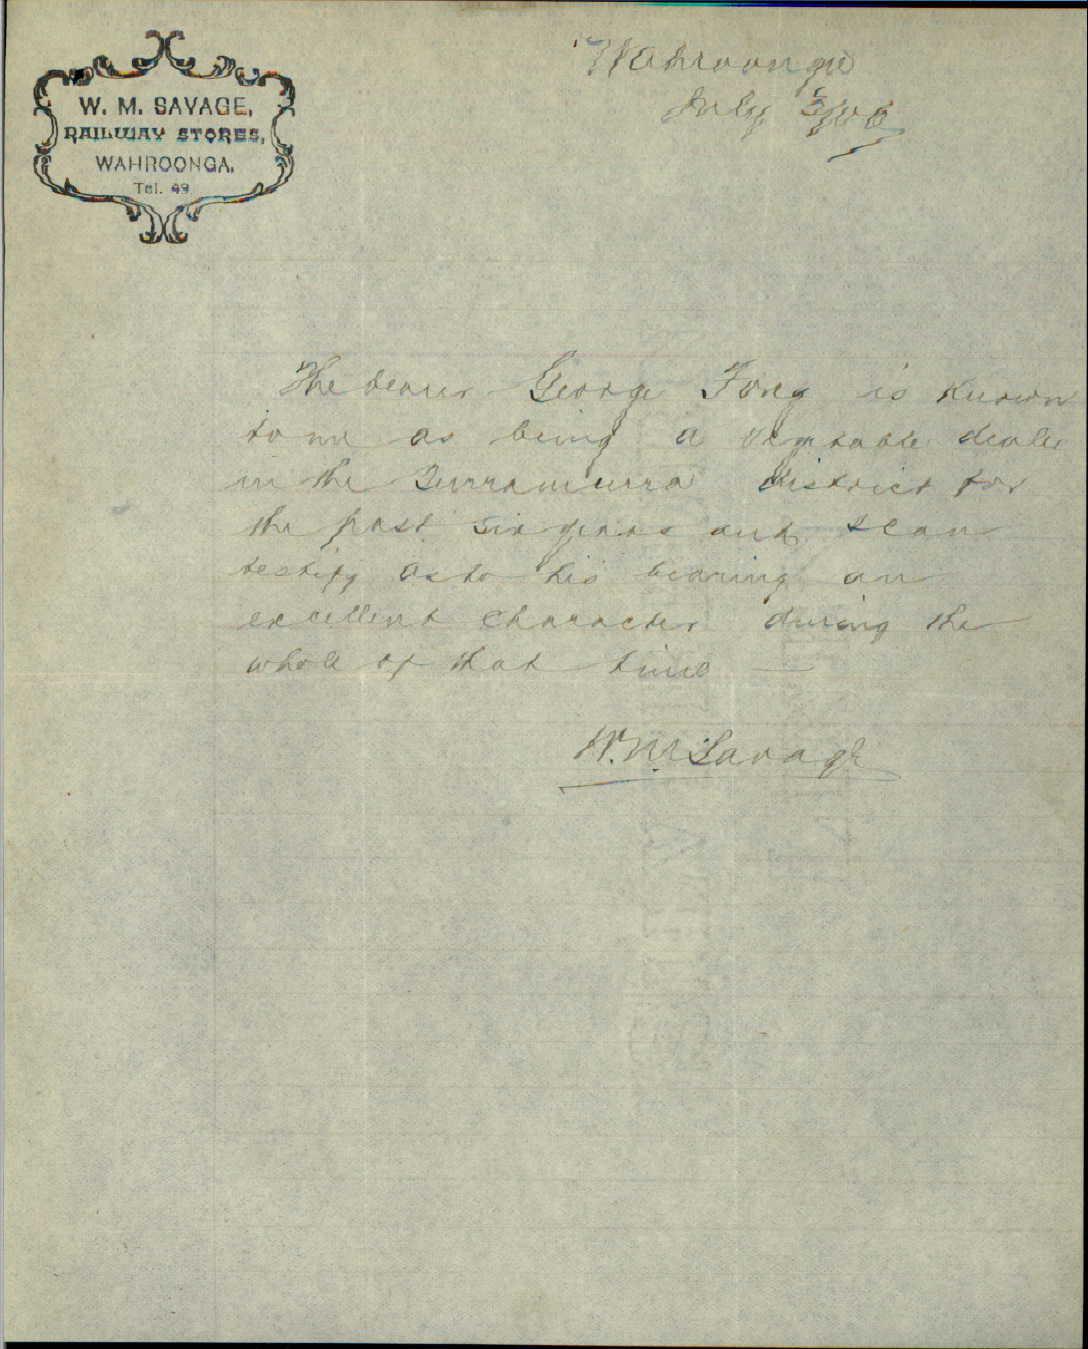 W. M. SAVAGE,
RAILWAY STORES,
WAHROONGA.
Tel. 49
Wahroonga
July 3/06
The bearer George Fong is known
to me as being a vegetable dealer
in the Turramurra district for
the past six years and I can
testify as to his bearing an
excellent character during the
whole of that time —
W. M. Savage